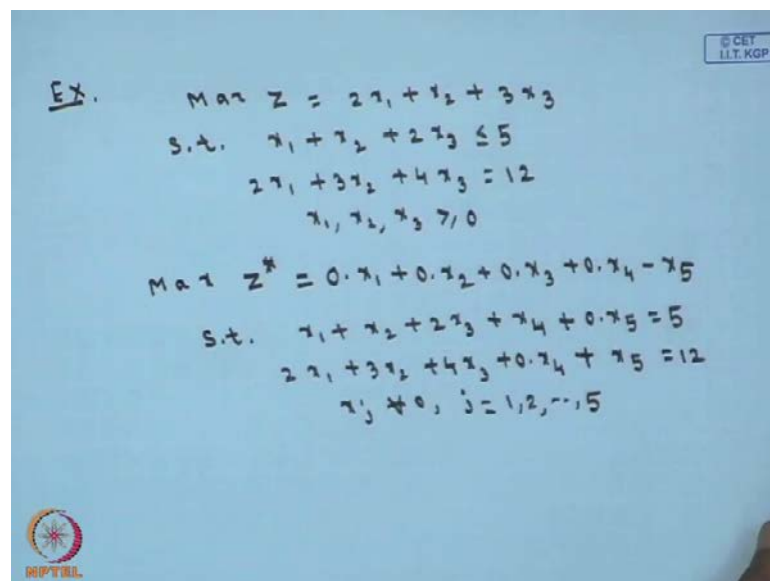 © CET
I.I.T. KGP
Ex. Max Z = 2x₁ + x₂ + 3x₃
s.t. x₁ + x₂ + 2x₃ ≤ 5
2x₁ + 3x₂ + 4x₃ = 12
x₁, x₂, x₃ ≥ 0
Max Z* = 0·x₁ + 0·x₂ + 0·x₃ + 0·x₄ - x₅
s.t. x₁ + x₂ + 2x₃ + x₄ + 0·x₅ = 5
2x₁ + 3x₂ + 4x₃ + 0·x₄ + x₅ = 12
xⱼ ≥ 0, j = 1, 2, ---, 5
NPTEL